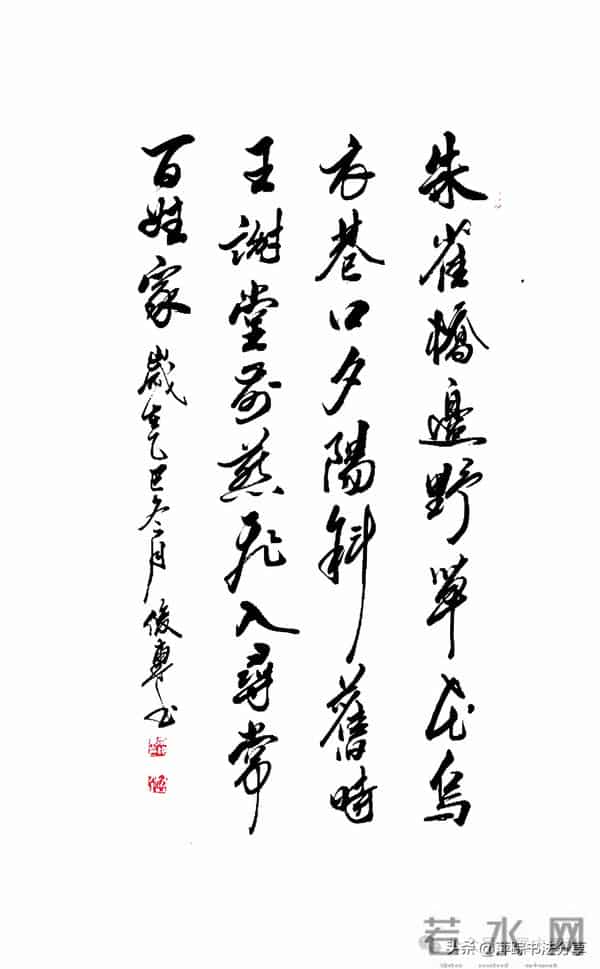 朱雀橋邊野草花烏
衣巷口夕陽斜舊時
王謝堂前燕飛入尋常
百姓家 歲在乙巳冬月俊書
若水网
头条 书法分享